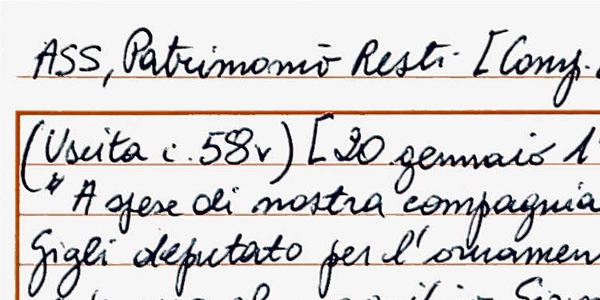 ASS, Patrimonio Resti. [Comp.
(Uscita c. 58v) [20 gennaio 1
" A spese di nostra compagnia
Gigli deputato per l'ornamen